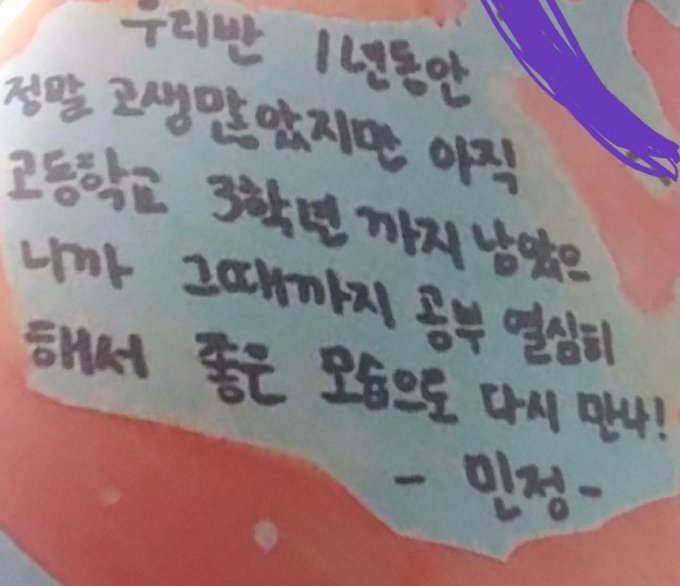 우리반 1년동안
정말 고생많았지만 아직
고등학교 3학년 까지 남았으
니까 그때까지 공부 열심히
해서 좋은 모습으로 다시 만나!
- 민정 -